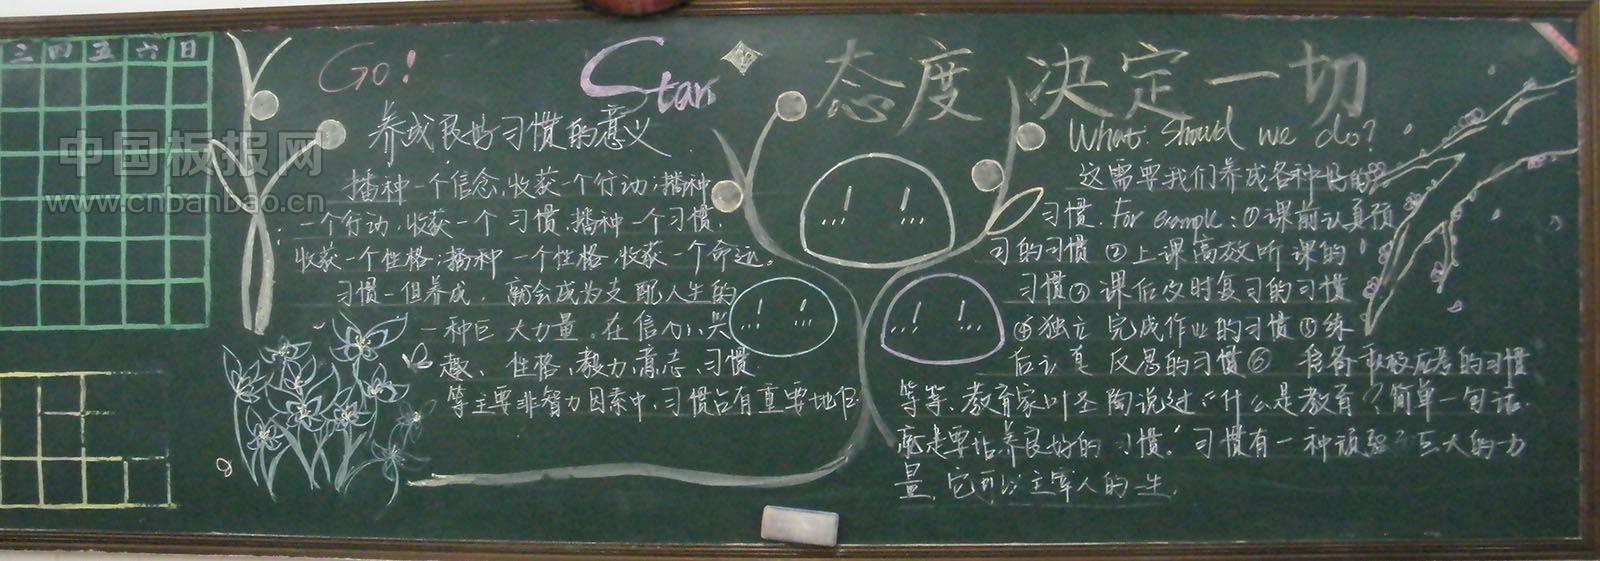 三 四 五 六 日
Go!
Star
态度决定一切
养成良好习惯的意义
播种一个信念,收获一个行动;播种
一个行动,收获一个习惯,播种一个习惯,
收获一个性格;播种一个性格,收获一个命运。
习惯一但养成,就会成为支配人生的
一种巨大力量。在信心、兴
趣、性格、毅力、意志、习惯
等主要非智力因素中,习惯占有重要地位.
What should we do?
这需要我们养成各种好的
习惯. For example:①课前认真预
习的习惯②上课高效听课的
习惯③课后及时复习的习惯
④独立完成作业的习惯⑤练
后认真反思的习惯⑥应考的习惯
等等、教育家叶圣陶说过:“什么是教育?简单一句话.
就是要培养良好的习惯.”习惯有一种顽强巨大的力
量,它可以主宰人的一生.
中国板报网
www.cnbanbao.cn